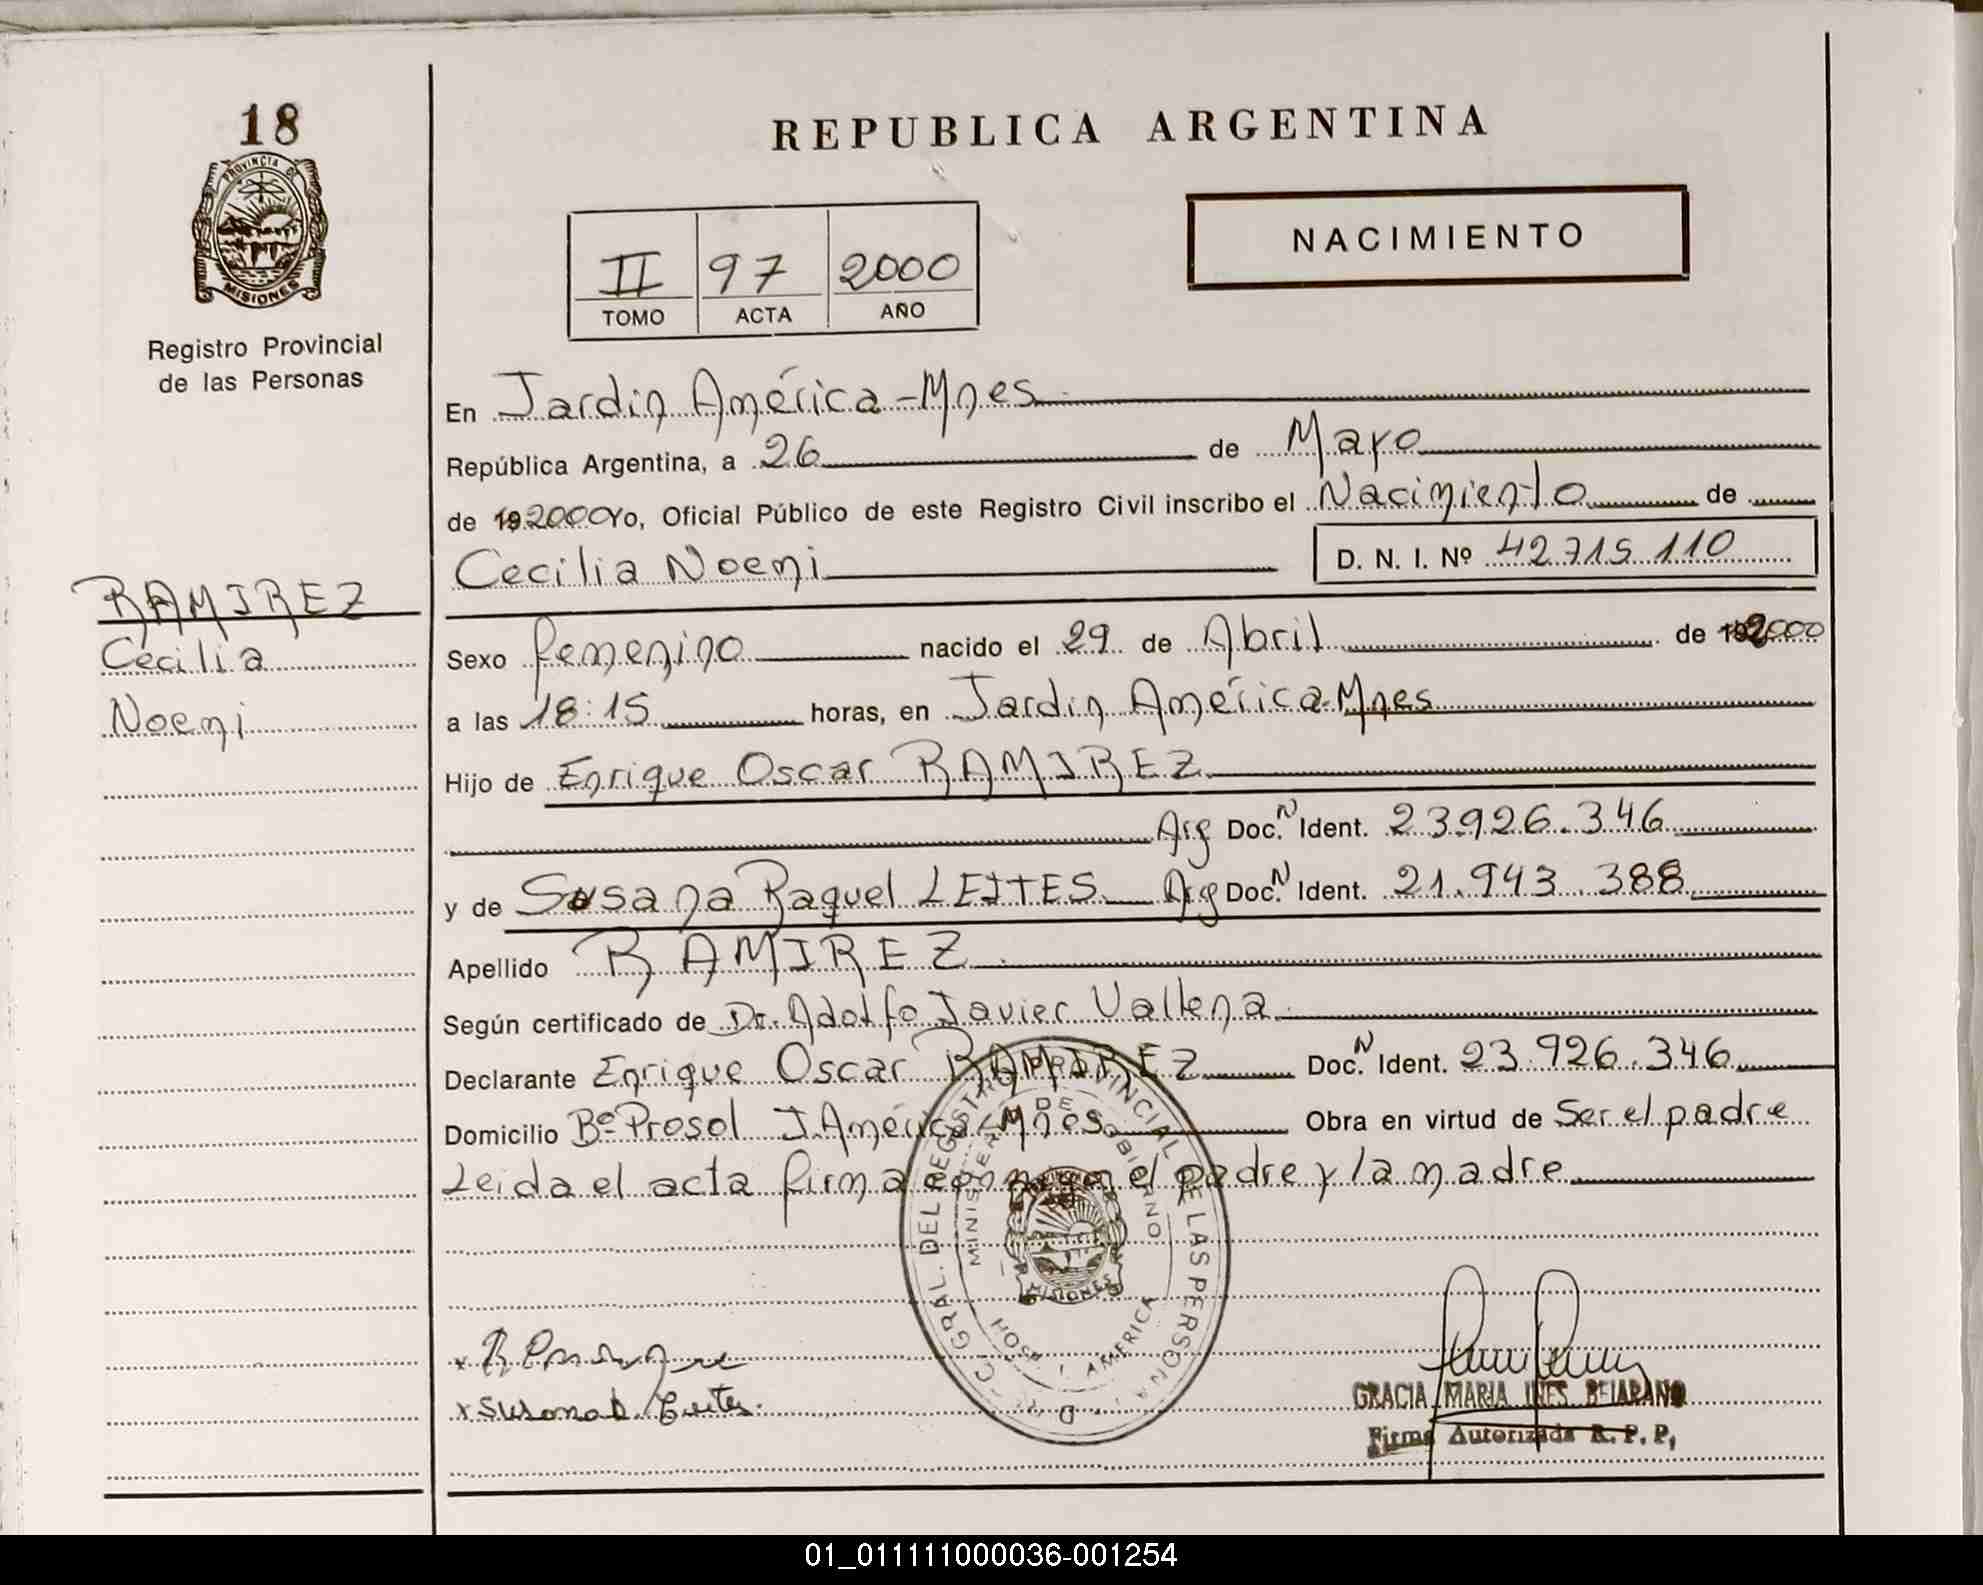 18
PROVINCIA DE
MISIONES
Registro Provincial
de las Personas
RAMIREZ
Cecilia
Noemi
REPUBLICA ARGENTINA
NACIMIENTO
II 97 2000
TOMO ACTA AÑO
En Jardin América-Mnes
República Argentina, a 26 de Mayo
de 19 2000 Yo, Oficial Público de este Registro Civil inscribo el Nacimiento de
Cecilia Noemi D. N. I. Nº 42.715.110
Sexo femenino nacido el 29 de Abril de 19 2000
a las 18:15 horas, en Jardin América-Mnes
Hijo de Enrique Oscar RAMIREZ
Arg Doc. N Ident. 23.926.346
y de Susana Raquel LEITES Arg Doc. N Ident. 21.943.388
Apellido RAMIREZ
Según certificado de Dr. Adolfo Javier Vallena
Declarante Enrique Oscar RAMIREZ Doc. N Ident. 23.926.346
Domicilio Bº Prosol J. América-Mnes Obra en virtud de Ser el padre
Leida el acta firma conmigo el padre y la madre
GRAL. DEL REGISTRO PROVINCIAL DE LAS PERSONAS
MINISTERIO DE GOBIERNO
MISIONES
AMERICA
Susana Leites
GRACIA MARIA INES BEJARANO
Firma Autorizada R. P. P.
01_011111000036-001254